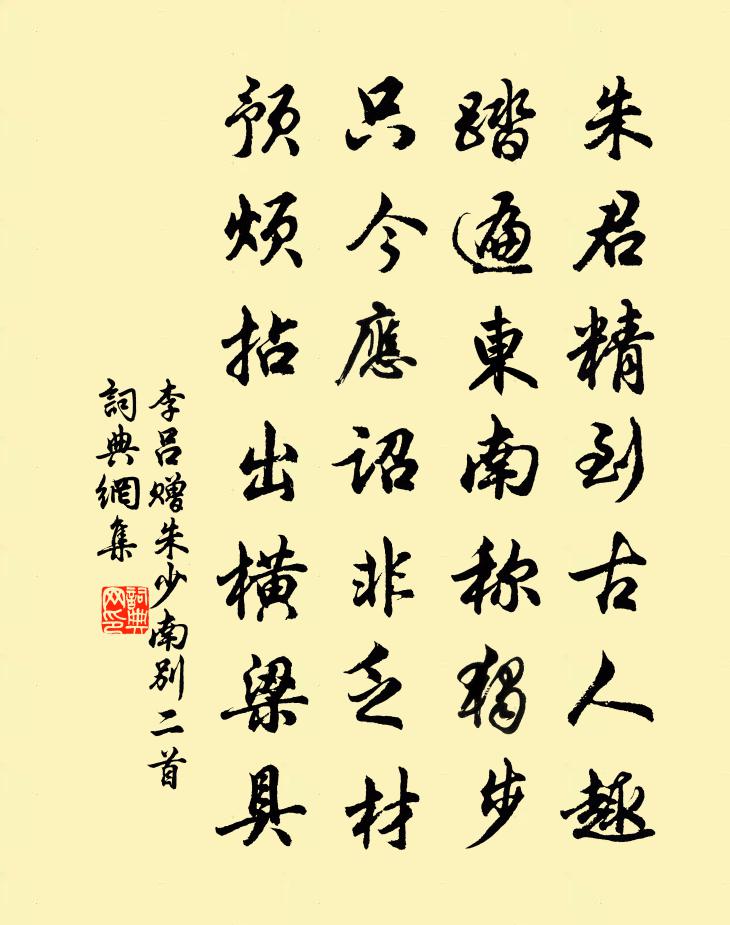 朱君精到古人趣
踏遍東南称獨步
只今應詔非乏材
預煩拈出橫梁具
李呂贈朱少南别二首
詞典網集
詞典网印